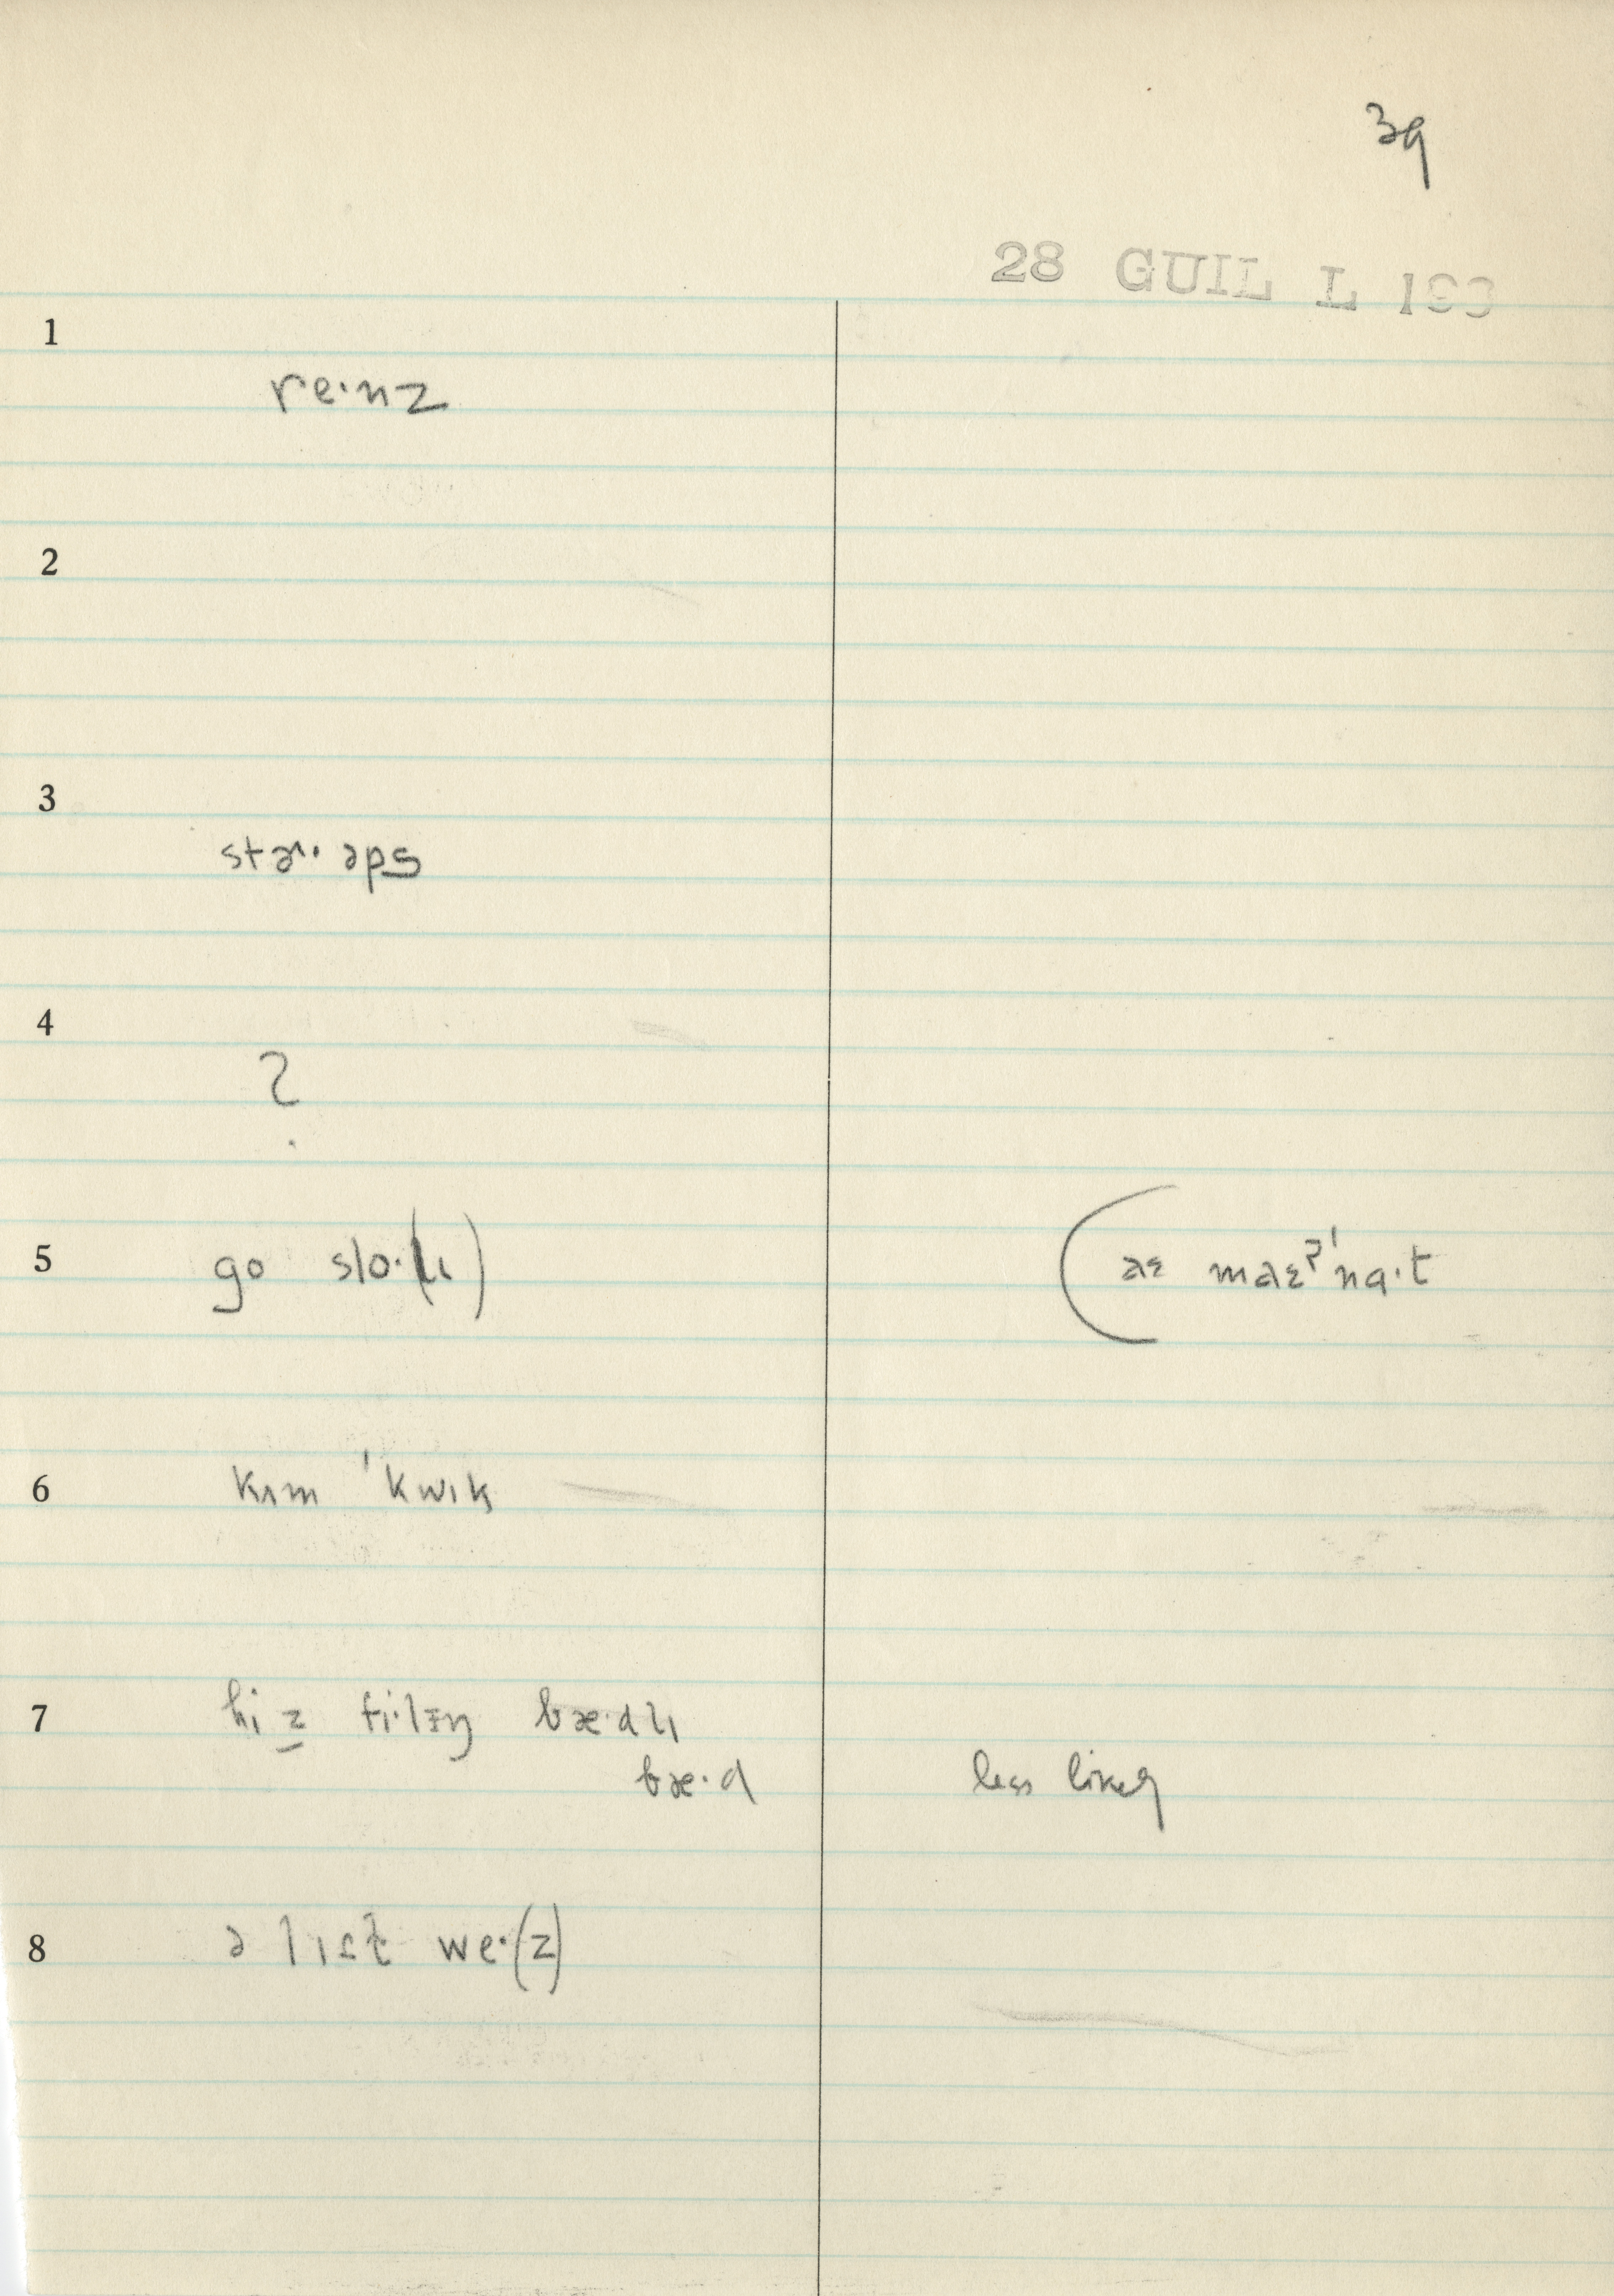 39
28 GUIL L 193
1
re·nz
2
3
stɚ· əps
4
?
5 go slo·(lɪ) (aɛ maɛʔ'nɑ·t
6 kʌm 'kwɪk
7 hi z fi·lɪŋ bæ·dlɪ
bæ·d less likely
8 ə lɪt we·(z)